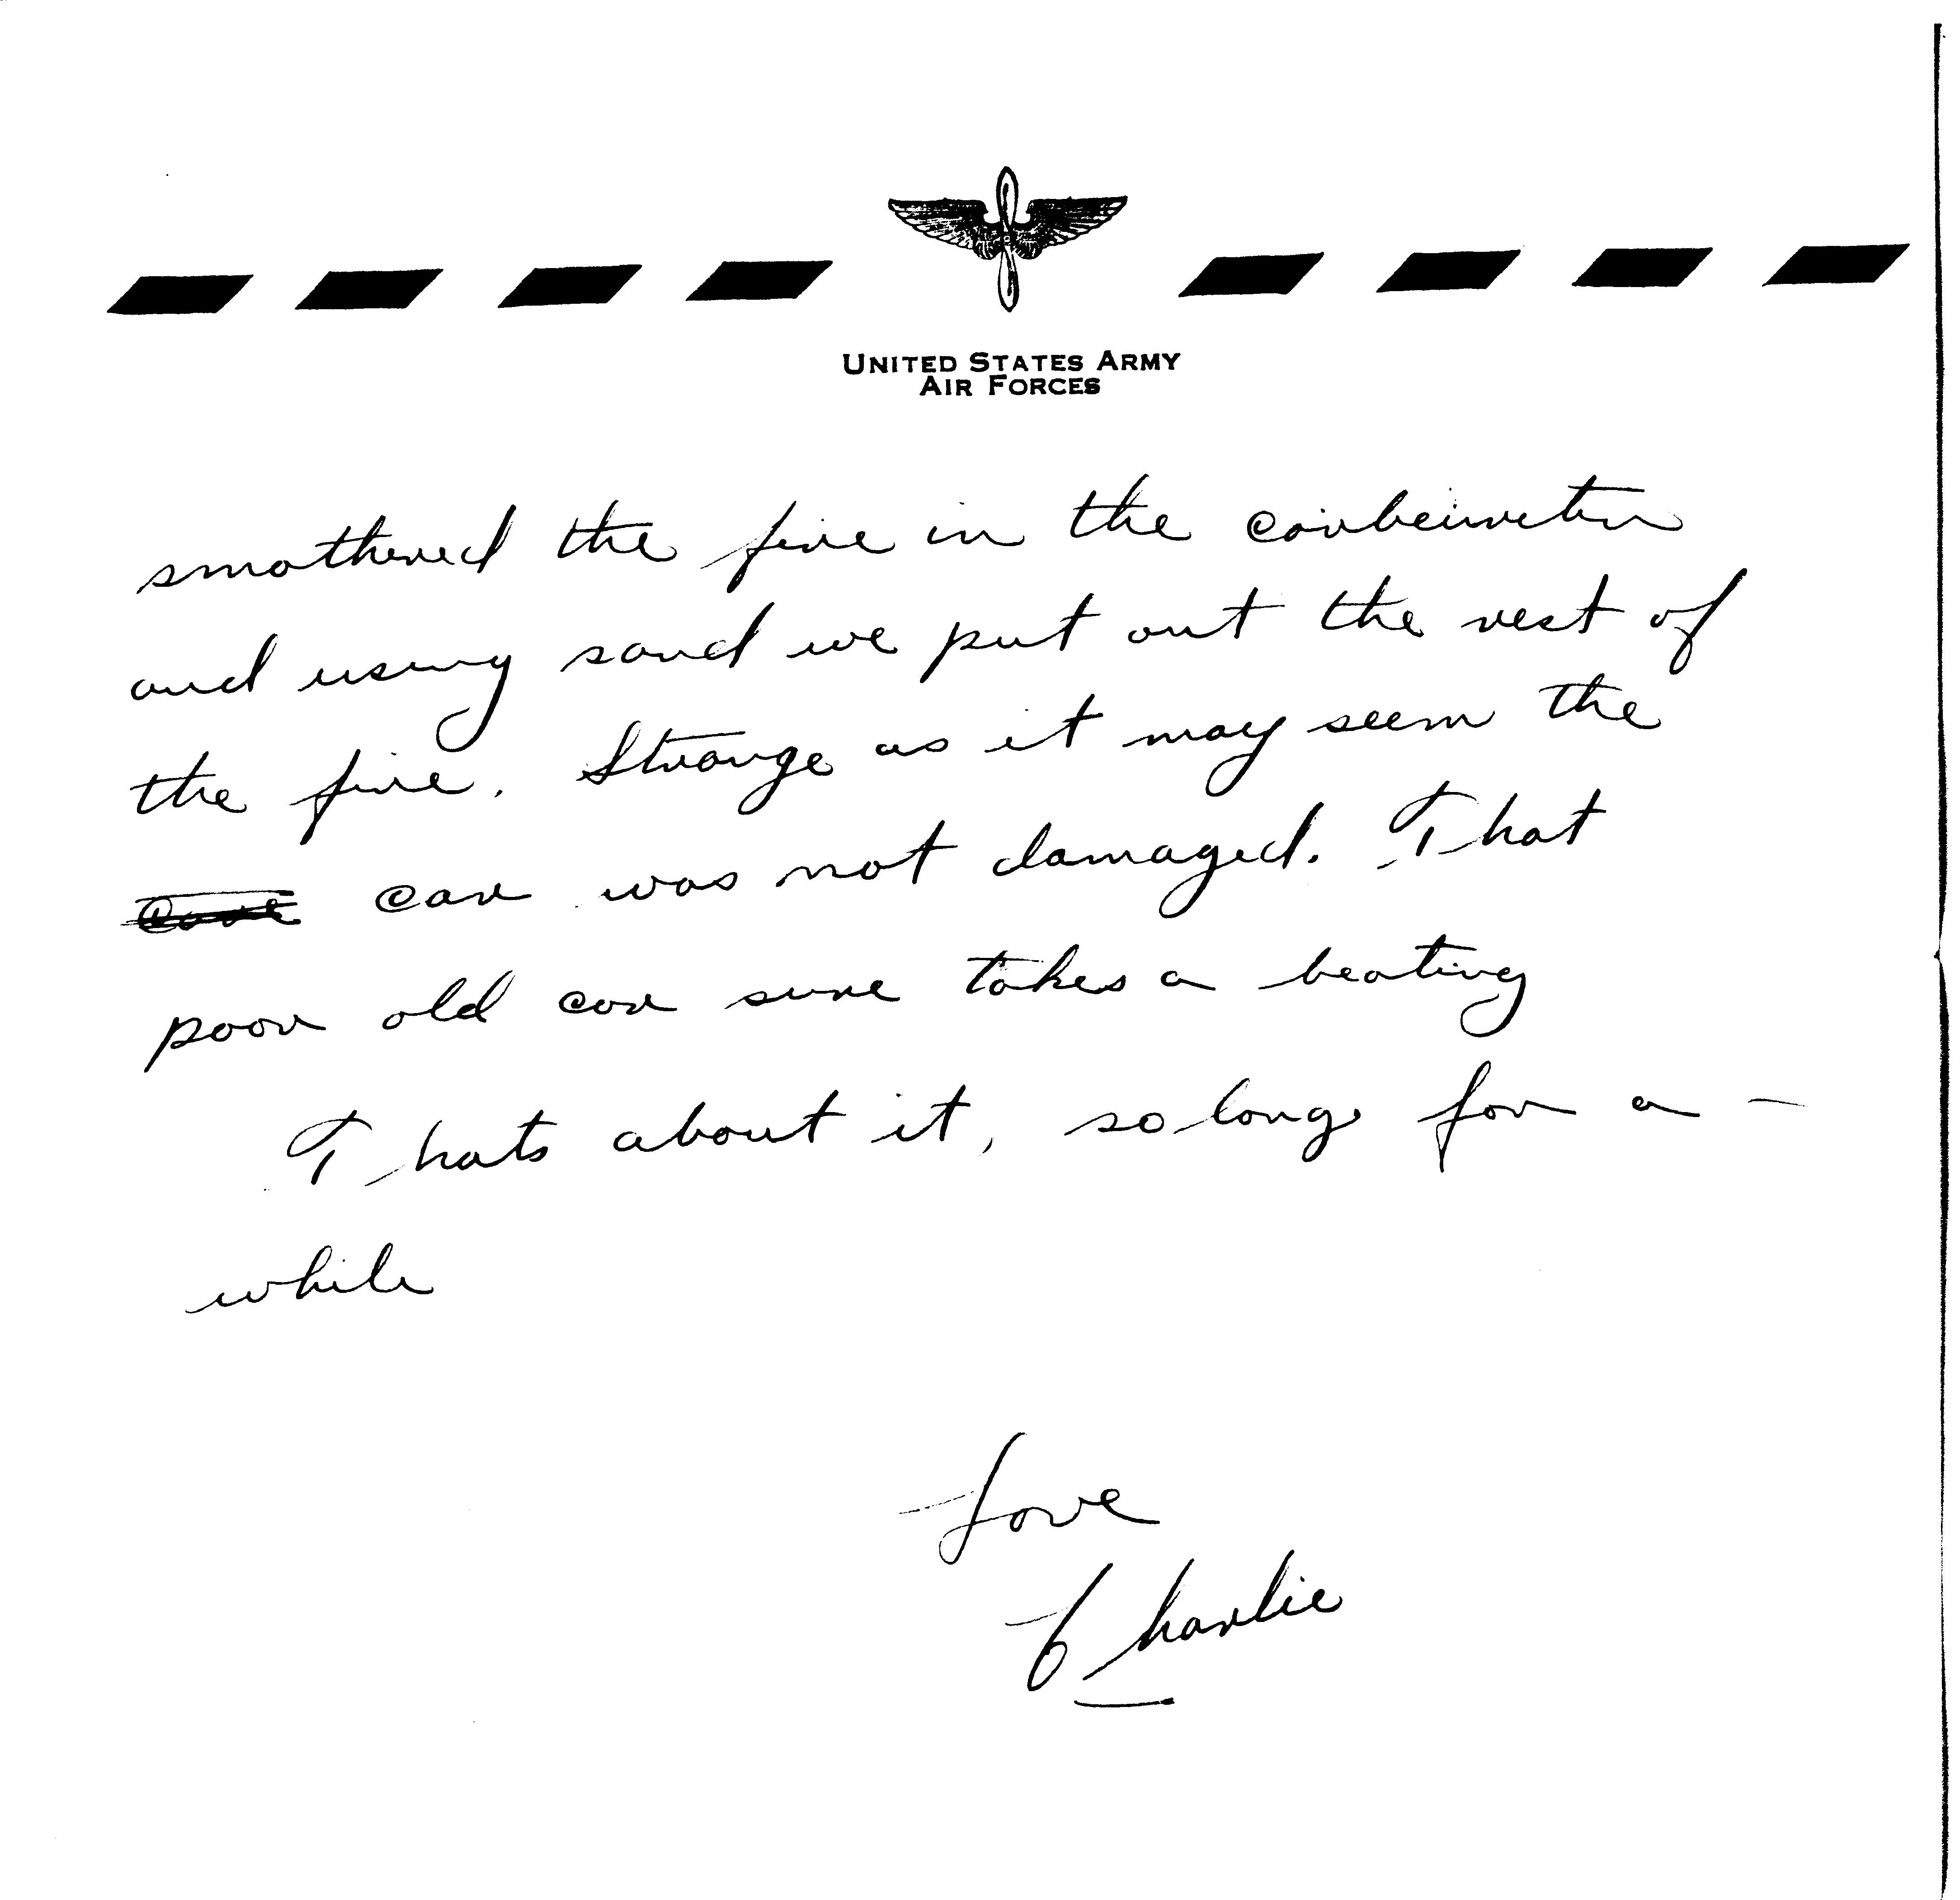 UNITED STATES ARMY
AIR FORCES
smothered the fire in the
and using sand we put out the rest of
the fire. Strange as it may seem the
car was not damaged. That
poor old car sure takes a beating
Thats about it, so long for a -
while
Love
Charlie